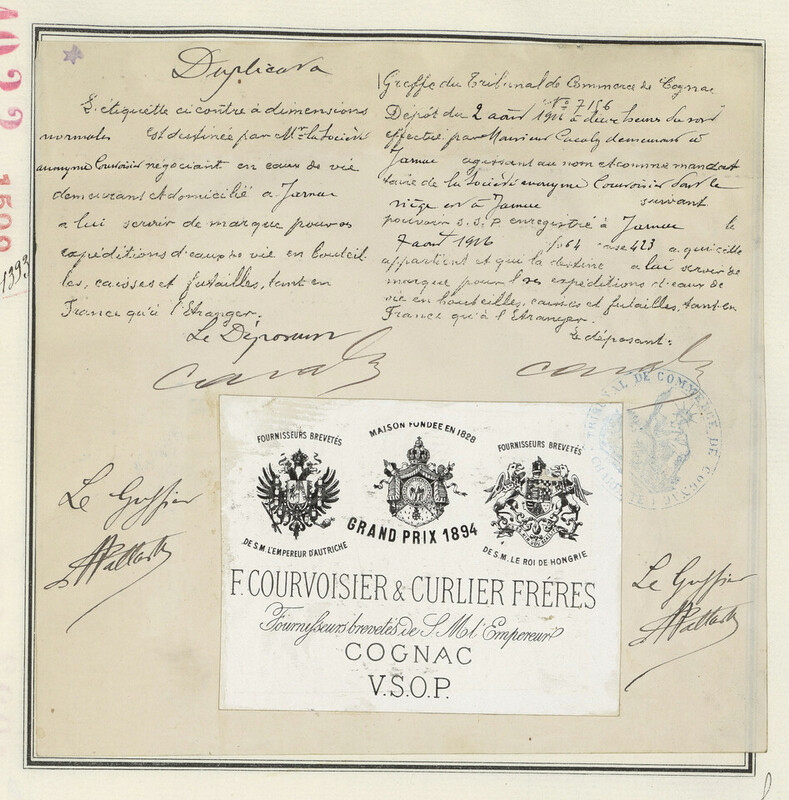 Duplicata
L'étiquette ci contre à dimensions
normales est destinée par Mr la Société
anonyme Courvoisier négociant en eaux de vie
demeurant et domicilié à Jarnac
a lui servir de marque pour ses
expéditions d'eaux de vie en bouteil
les, caisses et futailles, tant en
France qu'à l'Etranger.
Le Déposant
Greffe du Tribunal de Commerce de Cognac
No 7156
Dépôt du 2 août à deux heures du soir
effectué par Monsieur demeurant à
Jarnac agissant au nom et comme manda
taire de la Société anonyme Courvoisier dont le
siège est à Jarnac suivant
pouvoir S.S.P. enregistré à Jarnac le
août fo 64 case 423 a qui cette
appartient et qui la destine a lui servir de
marque pour ses expéditions d'eaux de
vie en bouteilles, caisses et futailles, tant en
France qu'à l'Etranger.
Le déposant:
1393
TRIBUNAL DE COMMERCE DE COGNAC
FOURNISSEURS BREVETÉS
DE S.M. L'EMPEREUR D'AUTRICHE
MAISON FONDÉE EN 1828
GRAND PRIX 1894
FOURNISSEURS BREVETÉS
DE S.M. LE ROI DE HONGRIE
F. COURVOISIER & CURLIER FRÉRES
Fournisseurs brevetés de S. M. l'Empereur
COGNAC
V.S.O.P.
Le Greffier
Le Greffier